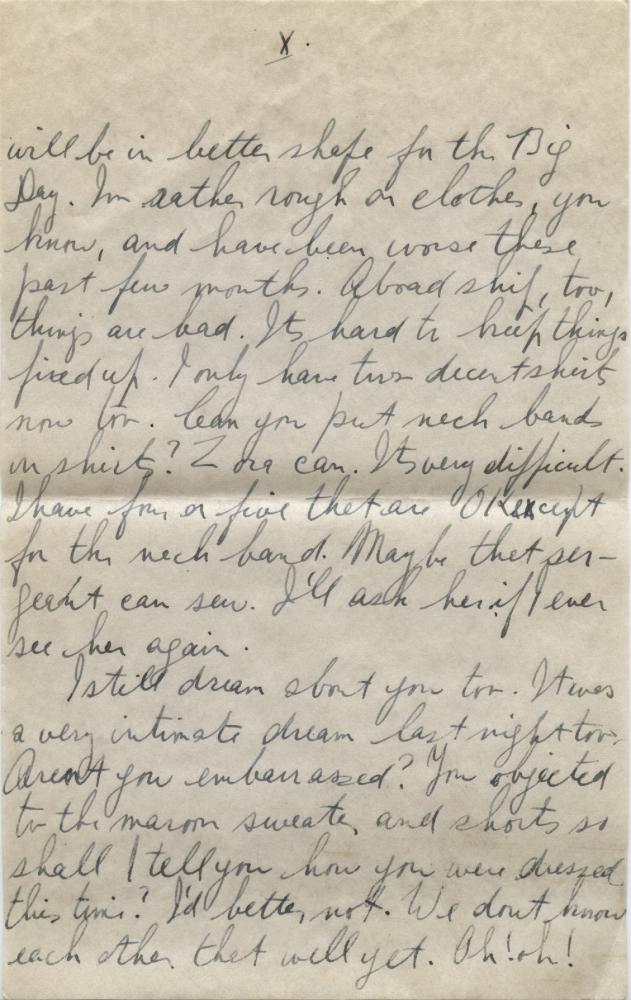 X.
will be in better shape for the Big
Day. Im rather rough on clothes, you
know, and have been worse these
past few months. Aboad ship, too,
things are bad. Its hard to keep things
fixed up. I only have two decent shirts
now too. Can you put neck bands
in shirts? Zora can. Its very difficult.
I have four or five that are OK except
for the neck band. Maybe that ser-
geant can sew. I'll ask her if I ever
see her again.
I still dream about you too. It was
a very intimate dream last night too.
Arent you embarrassed? You objected
to the maroon sweater and shorts so
shall I tell you how you were dressed
this time? I'd better not. We dont know
each other that well yet. Oh! oh!